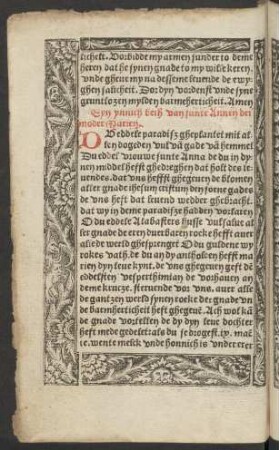 licheit. Vorbidde my armen sunder to deme
heren dat he synen gnade to my wil se keren.
vnde gheue my na desseme leuende de ewy-
ghen salicheit. Dor dyn vordenst vnde syne
gruntlozen mylden barmeherticheit. Amen
Eyn ynnich beth van sunte Annen der
moder Marien.
O Eddele paradisz gheplantet mit al-
len dogeden vul vā gade vā hemmel
Du eddel vrouwe sunte Anna de du in dy-
nen middel hefft ghedreghen dat holt des le-
uendes. dat vns hefft ghegeuen de blomen
aller gnade ihesum cristum den sone gades
de vns heft dat leuend wedder ghebracht.
dat wy in deme paradisze hadden vorlaren
O du eddele Alabasters busse vul salue al-
ler gnade de ere duerbaren roke hefft auer
al de werld ghesprenget O du guldene wy
rokes vath. de du an dy antholten hefft ma
rien dyn leue kynt. de vns ghegeuen heft dē
eddelsten vesperthimian de vorhauen an
deme cruce. steruende vor vns. auer alle
de gantzen werld synen roke der gnade vn
de barmherticheit heft ghegeuē. Ach wol kā
de gnade vortellen de dy dyn leue dochter
heft mede gedelet: als du se drogest. ix. mā
te. wente melck vnde honnich is vnder erer